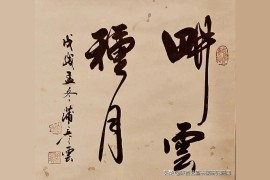 畊雲
種月
戊戌孟冬蒲夫雲